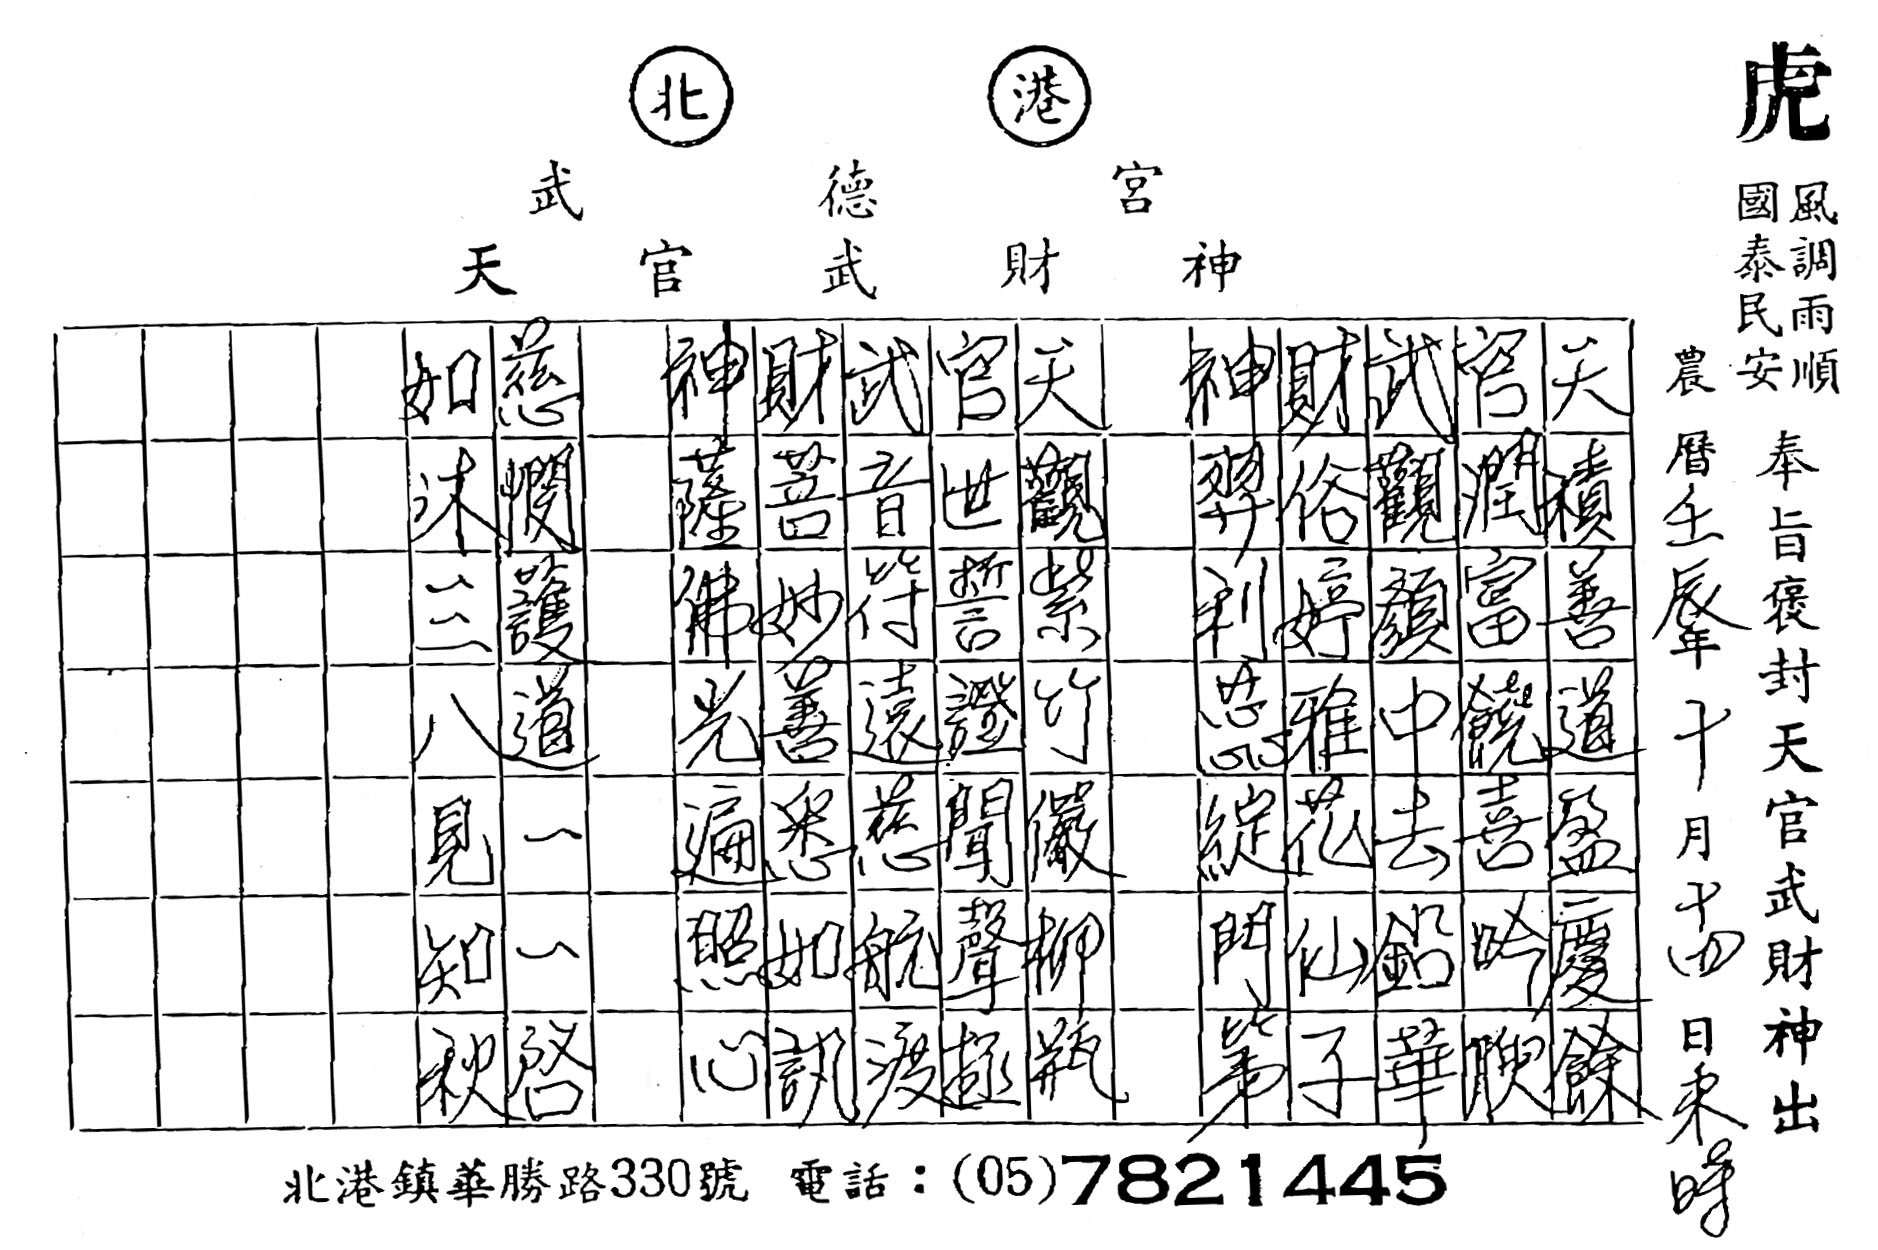 北港
武德宮
天官武財神
虎
風調雨順
國泰民安
奉旨褒封天官武財神出
農曆壬辰年十月十四日末時
天積善道盈慶餘
官潤富饒喜吟腴
武觀顏中去鉛華
財俗婷雅花仙子
神羿利芯綻門第
天觀紫竹儼柳瓶
官世誓證聞聲極
武音符遠慈航渡
財菩妙善悉如訊
神薩佛光遍照心
慈憫護道一一啓
如沐三八見知秋
北港鎮華勝路330號 電話：(05)7821445